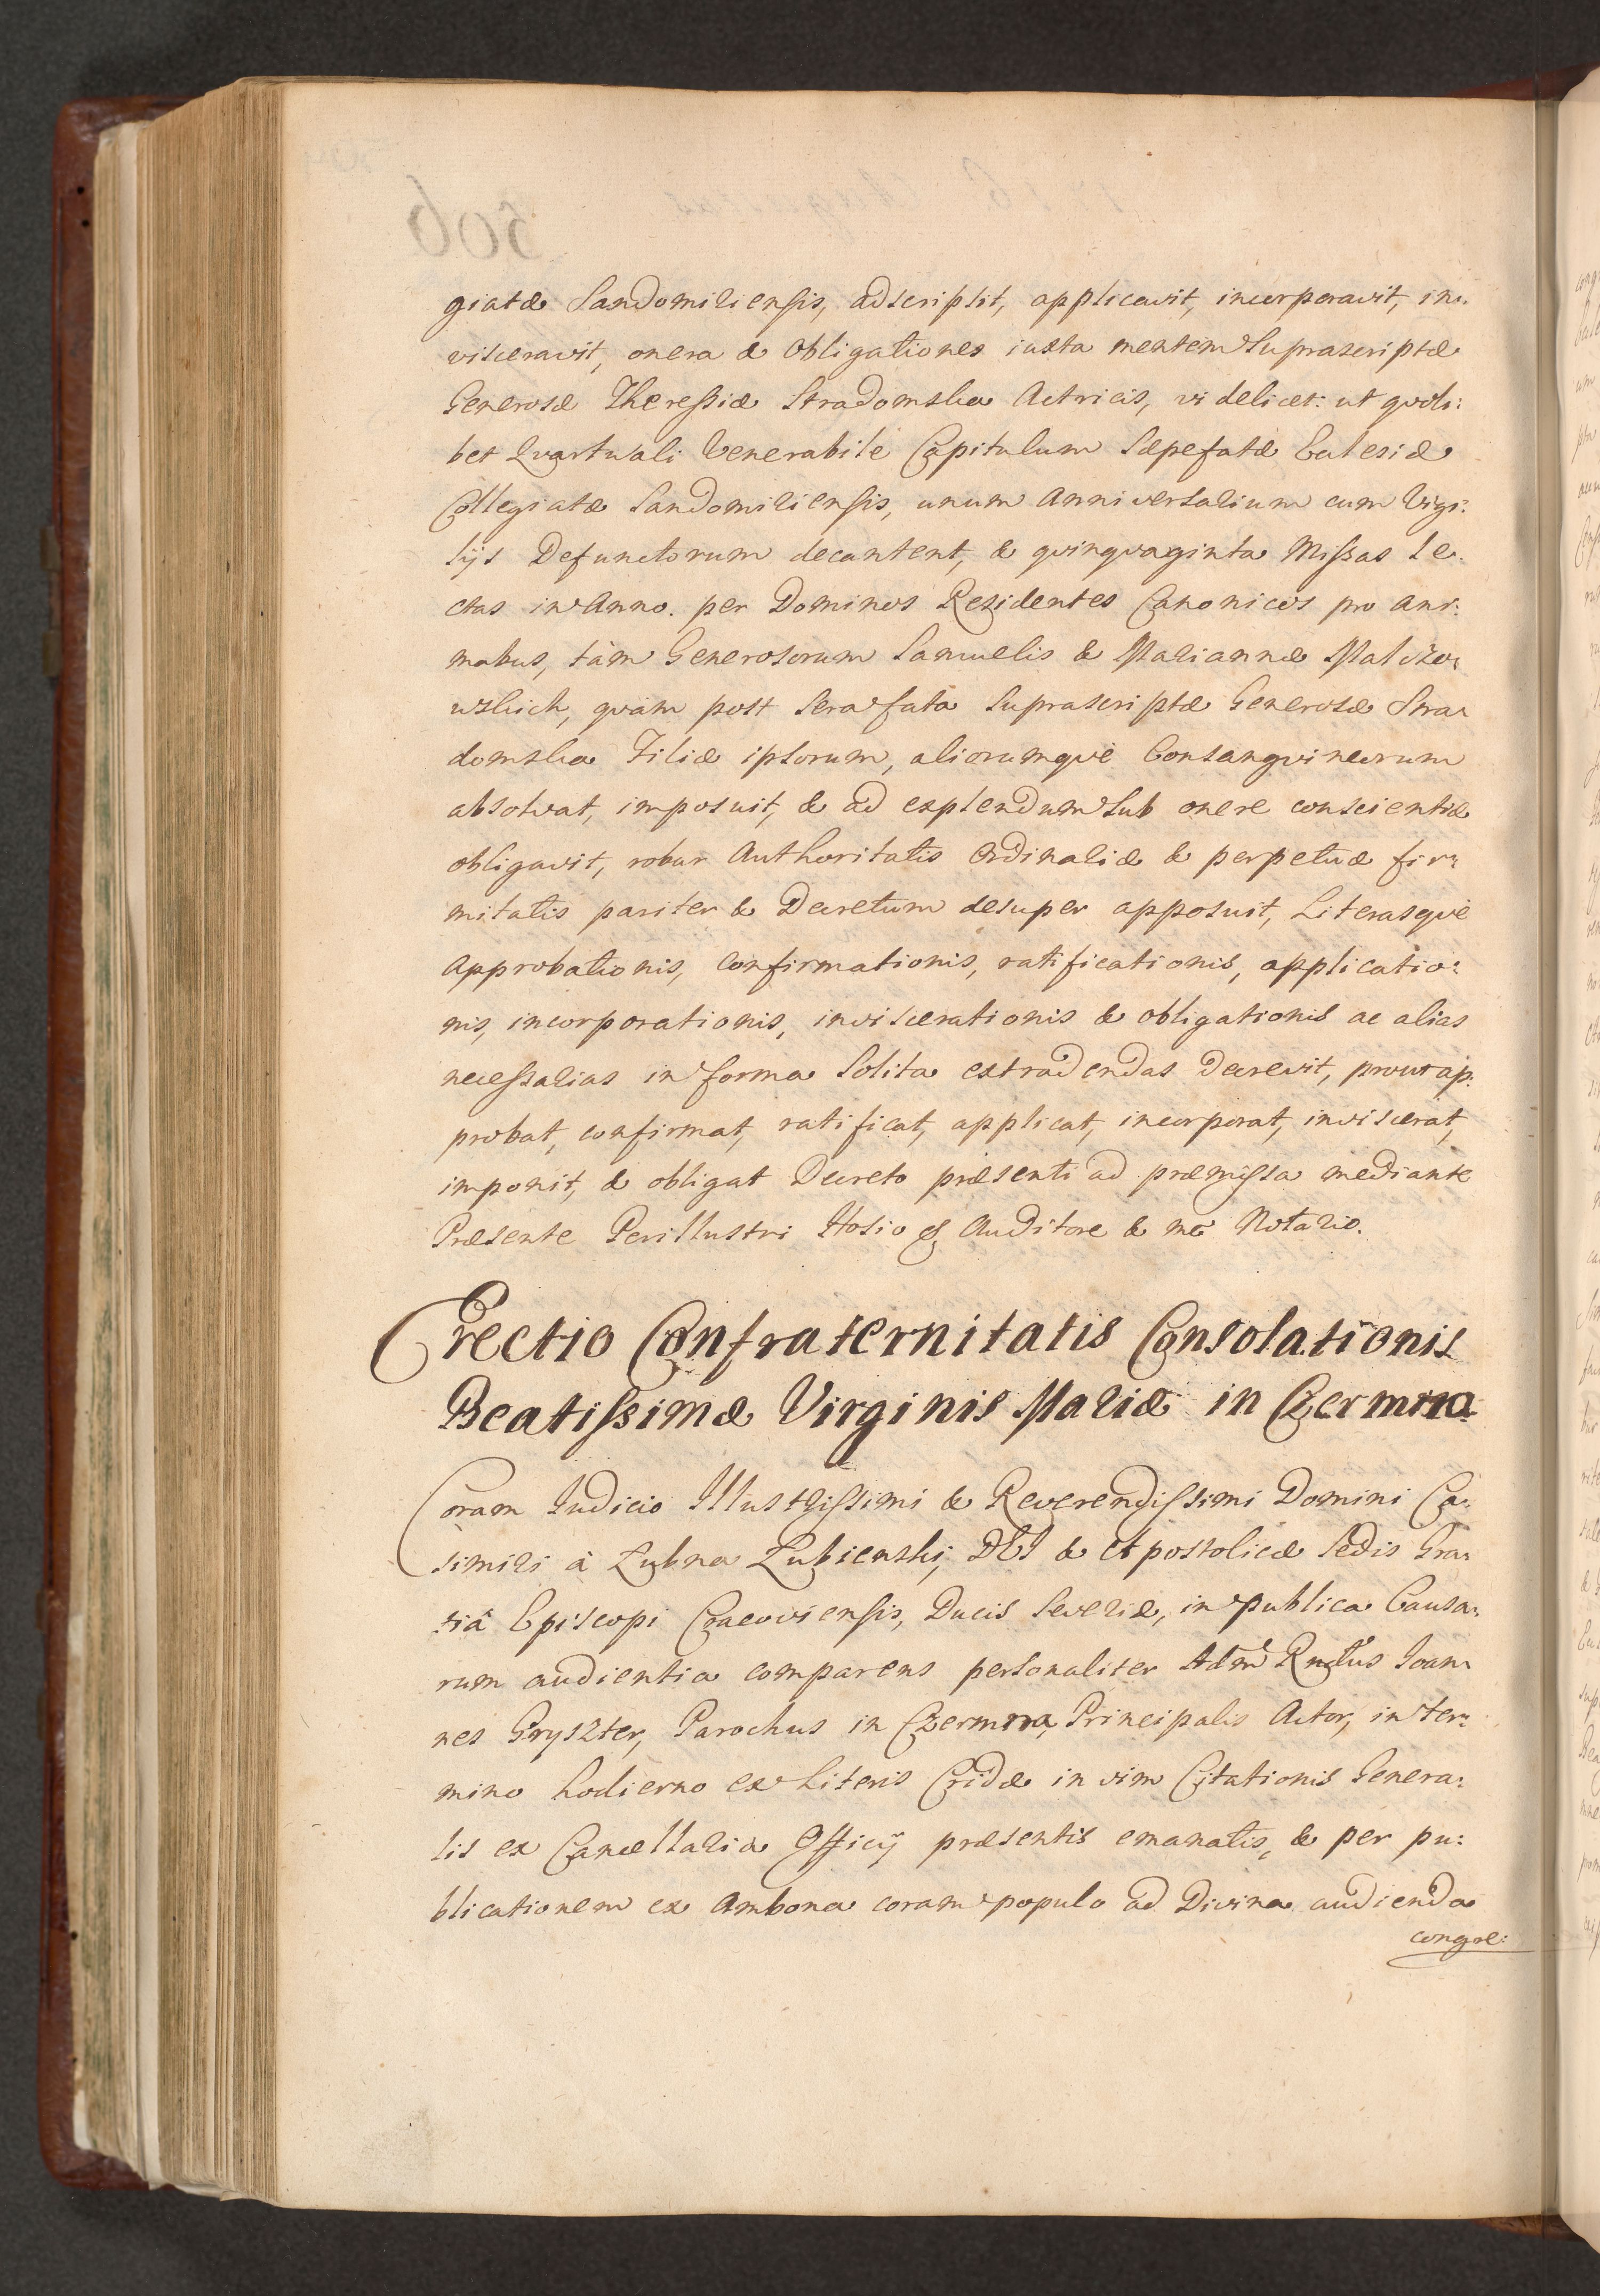 giatæ Sandomiriensis, adscripsit, applicavit, incorporavit, in:
visceravit, onera & obligationes iuxta mentem Suprascriptæ
Generosæ Theressiæ Stradomska Actricis, videlicet: ut quoli:
bet Qvartuali Venerabile Capitulum Sæpefatæ Ecclesiæ
Collegiatæ Sandomiriensis, unum Anniversarium cum Vigi:
lijs Defunctorum decantent, & qvinqvaginta Missas le:
ctas in Anno. per Dominos Rezidentes Canonicos pro ani:
mabus, tàm Generosorum Samuelis & Mariannæ Malczo:
wskich, qvàm post sera fata Suprascriptæ Generosæ Stra:
domska Filiæ ipsorum, aliorumqvè Consangvineorum
absolvat, imposuit, & ad explendum Sub onere conscientiæ
obligavit, robur Authoritatis Ordinariæ & perpetuæ fir:
mitatis pariter & Decretum desuper apposuit, Literasqvè
Approbationis, confirmationis, ratificationis, applicatio:
nis, incorporationis, inviscerationis & obligationis ac alias
necessarias in forma Solita extradendas decrevit, prout ap:
probat, confirmat, ratificat, applicat, incorporat, inviscerat,
imponit, & obligat Decreto præsenti ad præmissa mediante
Præsente Perillustri Hosio Auditore & me Notario.
Erectio Confraternitatis Consolationis
Beatissimæ Virginis Mariæ in Czermna
Coram Iudicio Illustrissimi & Reverendissimi Domini Ca:
simiri à Łubna Łubienski, DEI & Apostolicæ Sedis Gra:
tiâ Episcopi Cracoviensis, Ducis Severiæ, in publica Causa:
rum audientia comparens personaliter Adm Rndus Ioan:
nes Gryszter, Parochus in Czermna, Principalis Actor, in ter:
mino hodierno ex Literis Cridæ in vim Citationis Genera:
lis ex Cancellaria Officij præsentis emanatis, & per pu:
blicationem ex Ambona coram populo ad Divina audienda
congre: